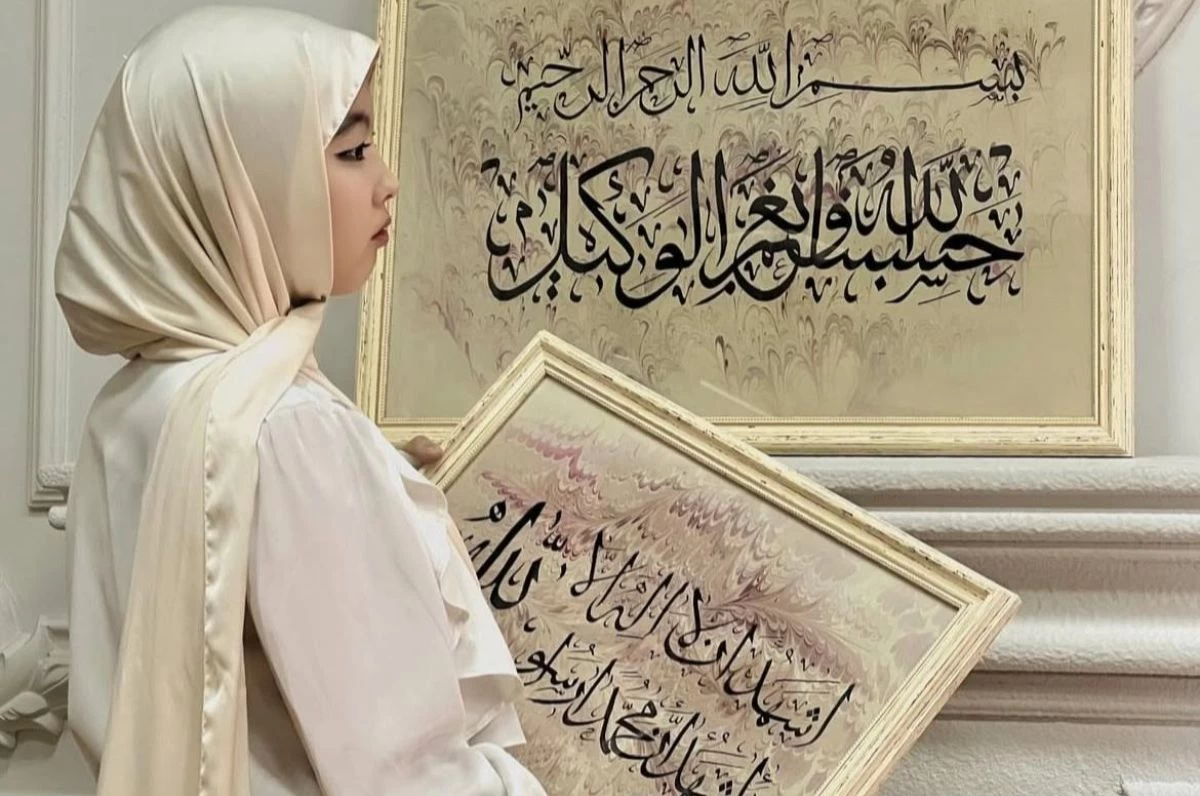 بسم الله الرحمن الرحيم
حسبنا الله ونعم الوكيل
اشهد ان لا اله الا الله
اشهد ان محمدا رسول